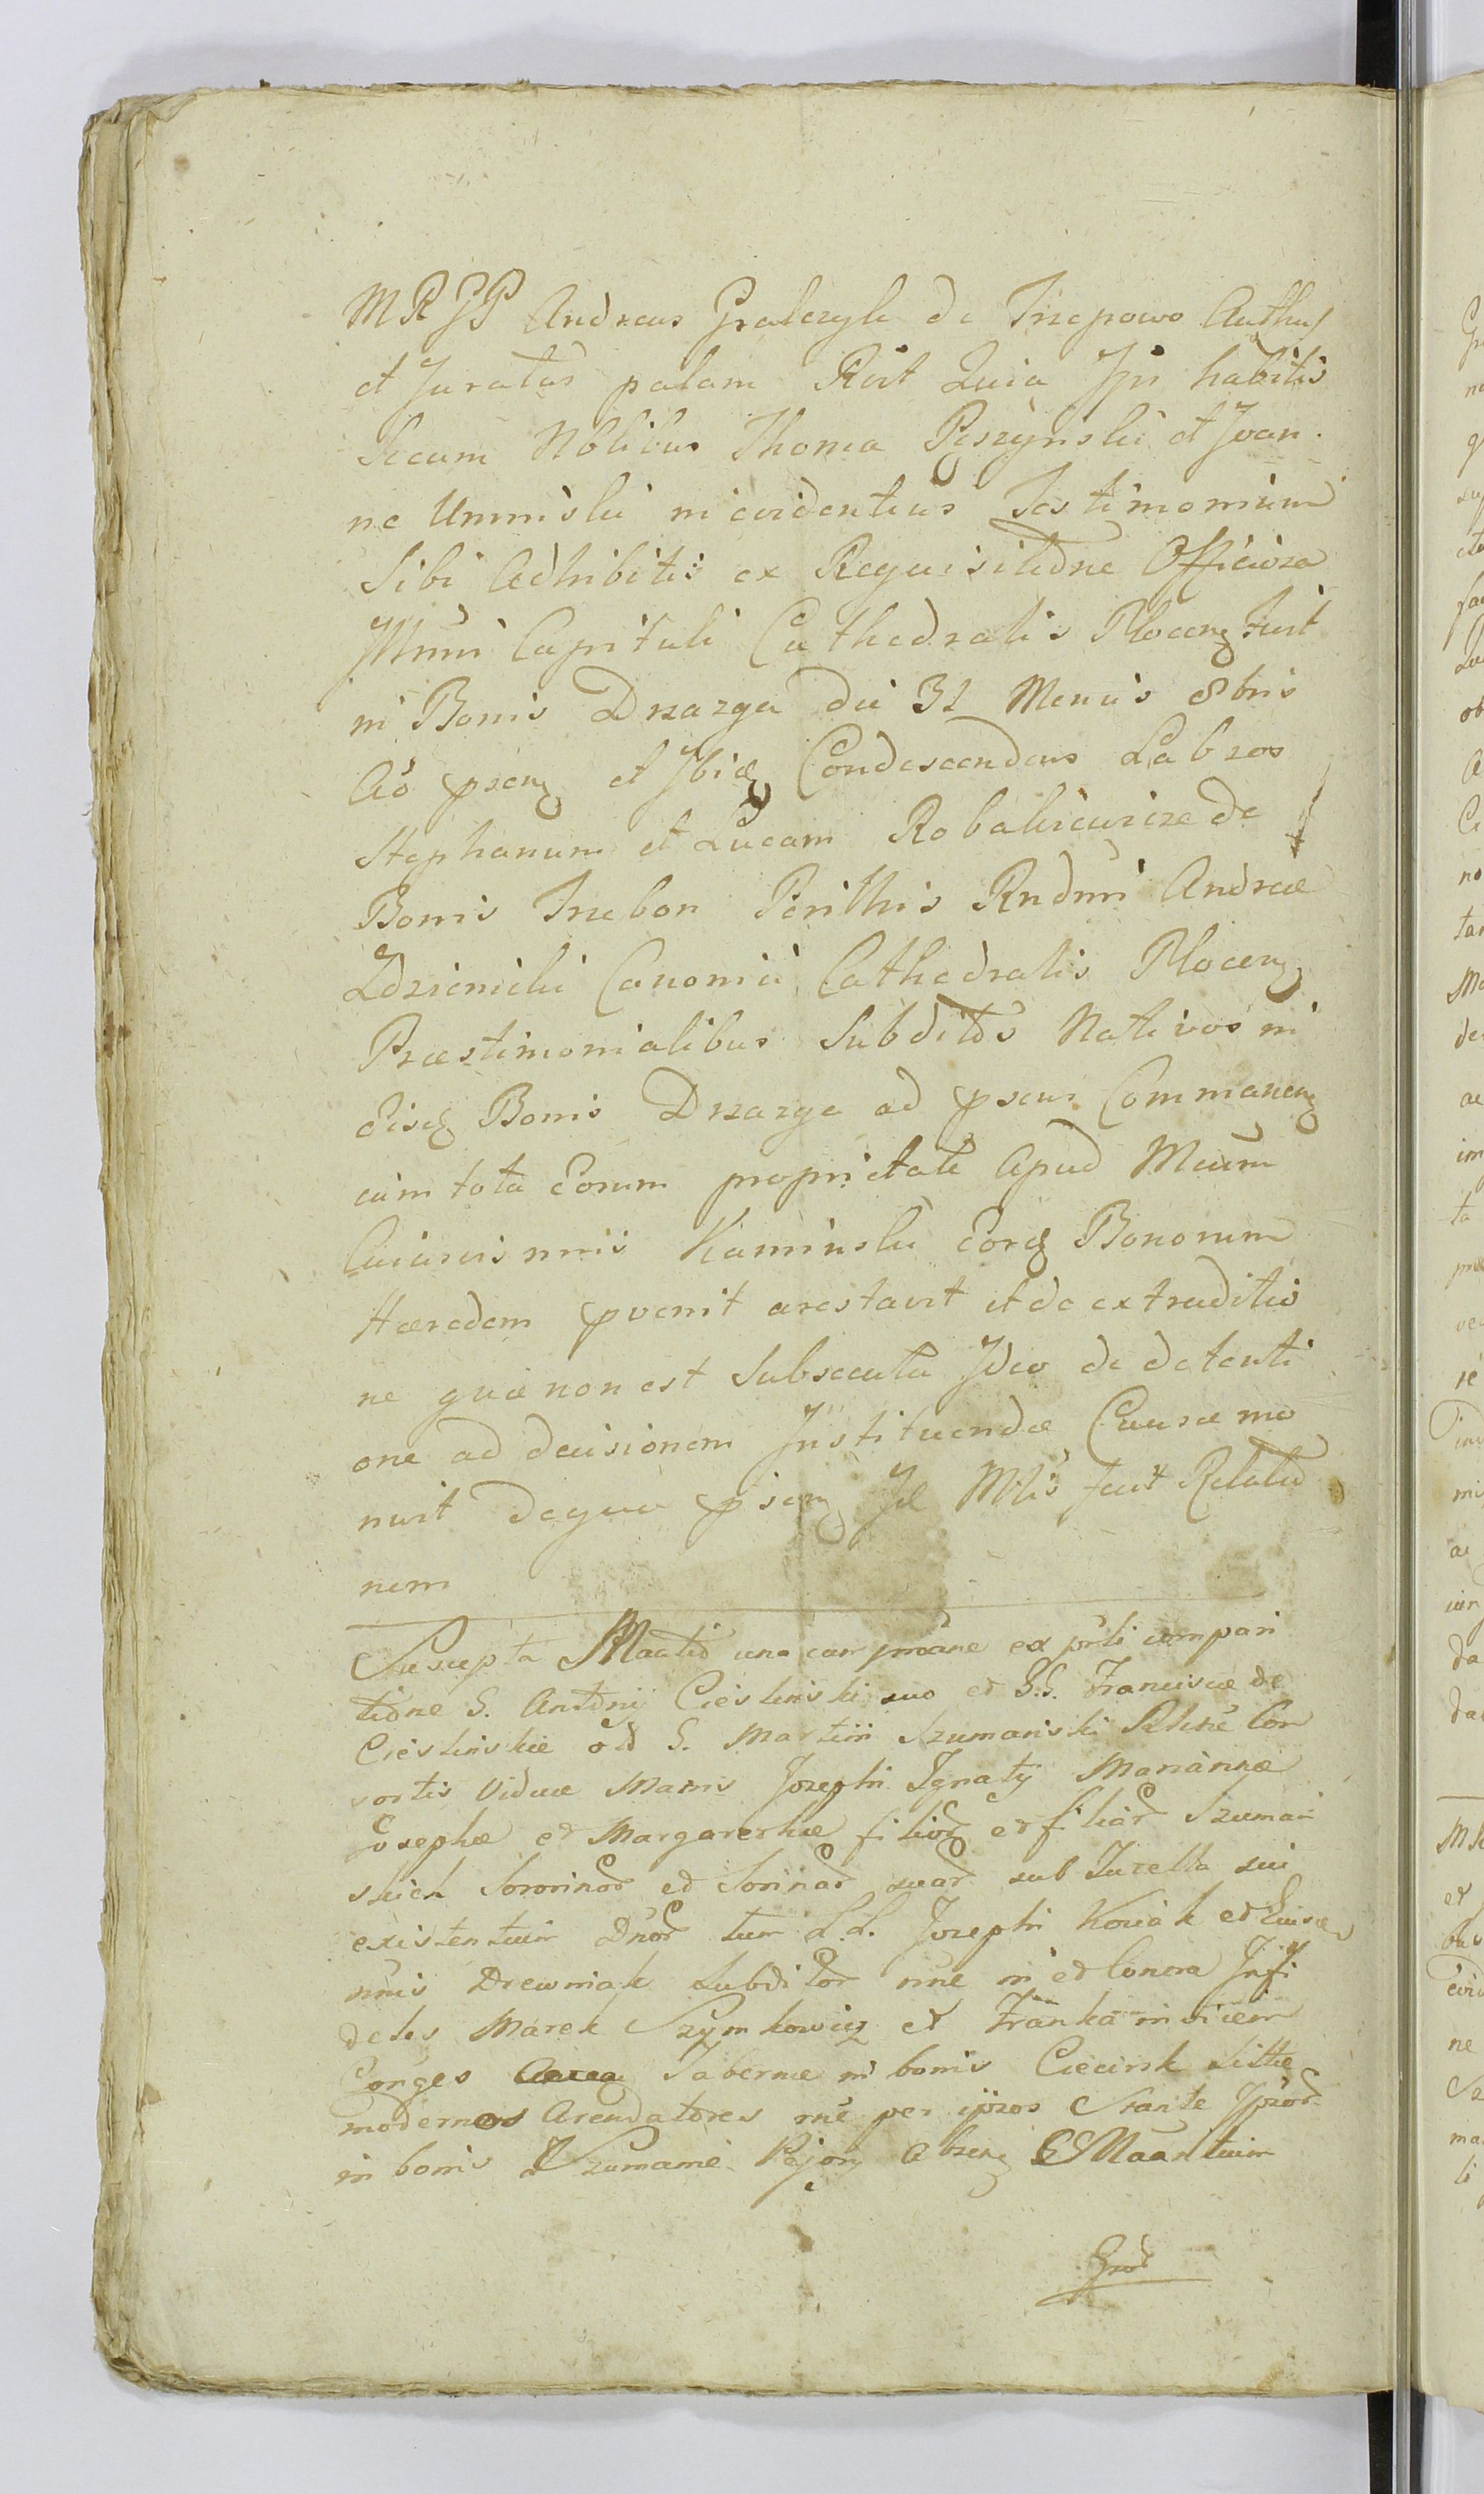 MRGP Andreas Gralczyk de Trzepowo Authus
et Juratus palam Rnit Quia Jpse habitis
Secum Nobilibus Thoma Pęszynski et Joan.
ne Umniski in evidentius Testimonium
Sibi Adhibitis ex Requisitióne Officiosa
Jllmi Capituli Cathedralis Plocen fuit
in Bonis Drzazga die 31 Mensis 8bris
Aó praen et Jbidq Condescendens Labros
Stephanum et Lucam Robakiewicze de
Bonis Trzebon Perillris Rndmi Andreæ
Zdzienicki Canonici Cathedralis Plocen
Præstimonialibus Subditos Nativos in
Eisdq Bonis Drzazga ad praens Commanen
cum tota Eorum proprietate Apud Mcum
Kaminski Eordq Bonorum
Hæredem pvenit arestavit et de extraditio
ne quæ non est Subsecuta Jdeo de detenti
one ad decisionem Jnstituendæ Causæ mo
nuit De qua psen Jd Mlis fecit Relatio
nem
Suscepta Maatio una cum ex prli compari
tióne G. Antóny Cieslinski suo et G.G. Franciscæ de
Cieslinskie olÐ G. Martini Szumanski Rlicte Con
sortis Viduæ Matris Josephi Ignaty Mariannæ
Josephæ et Margarethæ filiorÐ et filiarÐ Szuman
skich SororinorÐ et SorinarÐ suarÐ sub Tutella sui
existentium DnorÐ tum L.L. Josephi Nowak et
Drewniak SubditorÐ nne in et Contra Jnfi
deles Marek Szymkowicz et Franka invicem
Conges Taberne in bonis Ciecirsk sitæ
modernos Arendatores nne per ipsos Stante JpsorÐ
in bonis Szumanie Pejory absen Maantium